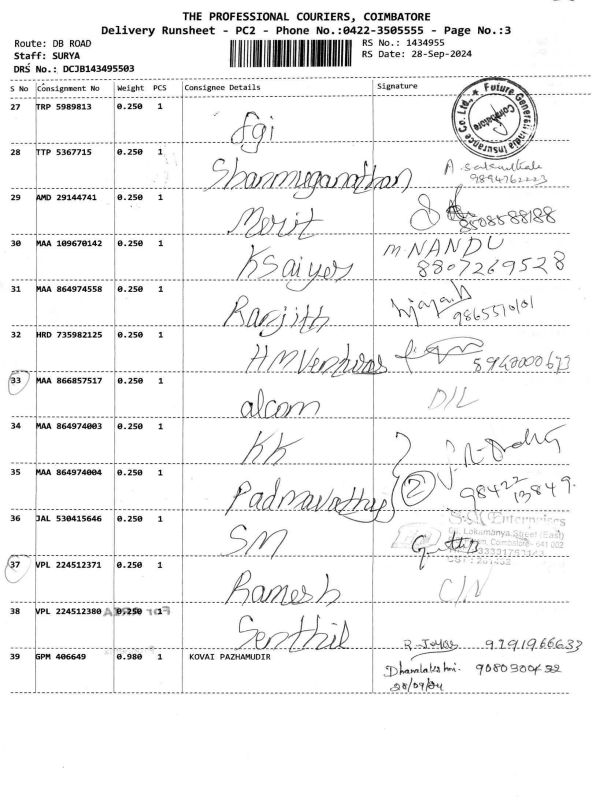 THE PROFESSIONAL COURIERS, COIMBATORE
Delivery Runsheet - PC2 - Phone No.:0422-3505555 - Page No.:3
Route: DB ROAD
RS No.: 1434955
Staff: SURYA
RS Date: 28-Sep-2024
DRS No.: DCJB143495503
S No Consignment No Weight PCS Consignee Details Signature
27 TRP 5989813 0.250 1 Fgi
Future Generali India Insurance Co. Ltd., Coimbatore
28 TTP 5367715 0.250 1 Shanmuganathan
9894762223
29 AMD 29144741 0.250 1 Merit
8508588188
30 MAA 109670142 0.250 1 K Saiyes M NANDU
8807269528
31 MAA 864974558 0.250 1 Ranjith
32 HRD 735982125 0.250 1 HM Ventures
33 MAA 866857517 0.250 1 alcom D/L
34 MAA 864974003 0.250 1 KK
35 MAA 864974004 0.250 1 Padmavathy 2
98422
13849.
36 JAL 530415646 0.250 1 SM
S.M Enterprises
Lokamanya Street (East)
Coimbatore - 641 002
37 VPL 224512371 0.250 1 Ramesh
38 VPL 224512380 0.250 1 Senthil
9291966633
39 GPM 406649 0.980 1 KOVAI PAZHAMUDIR
Dhanalakshmi.
28/09/24